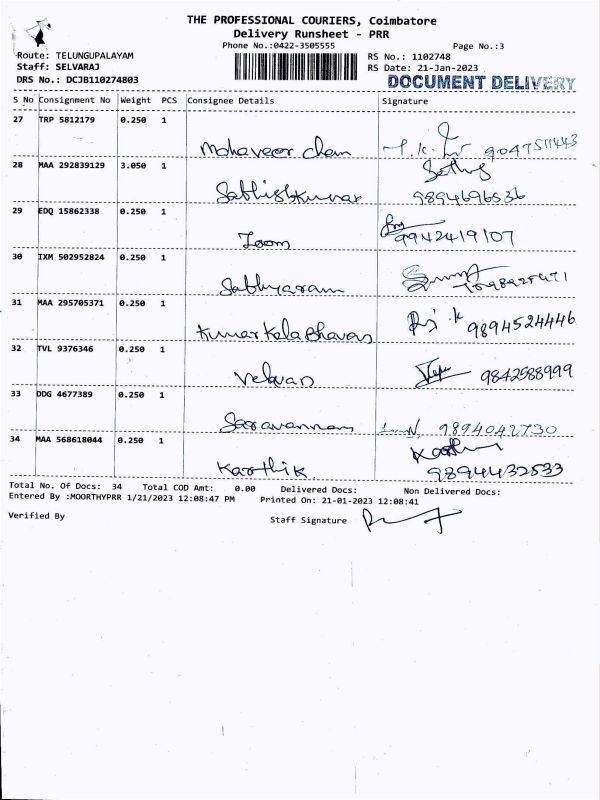 THE PROFESSIONAL COURIERS, Coimbatore
Delivery Runsheet - PRR
Phone No.:0422-3505555 Page No.:3
Route: TELUNGUPALAYAM RS No.: 1102748
Staff: SELVARAJ RS Date: 21-Jan-2023
DRS No.: DCJB110274803 DOCUMENT DELIVERY
S No Consignment No Weight PCS Consignee Details Signature
27 TRP 5812179 0.250 1
Mohaveer chem 9047511443
28 MAA 292839129 3.050 1
Sathishkumar 9894696536
29 EDQ 15862338 0.250 1
Zoom 9942419107
30 IXM 502952824 0.250 1
Sathyaram
31 MAA 295705371 0.250 1
Kumar Kala Bhavan 9894524446
32 TVL 9376346 0.250 1
Velavan 9842588999
33 DDG 4677389 0.250 1
Saravannan 9894042730
34 MAA 568618044 0.250 1
Karthik. 9894432533
Total No. Of Docs: 34 Total COD Amt: 0.00 Delivered Docs: Non Delivered Docs:
Entered By :MOORTHYPRR 1/21/2023 12:08:47 PM Printed On: 21-01-2023 12:08:41
Verified By Staff Signature